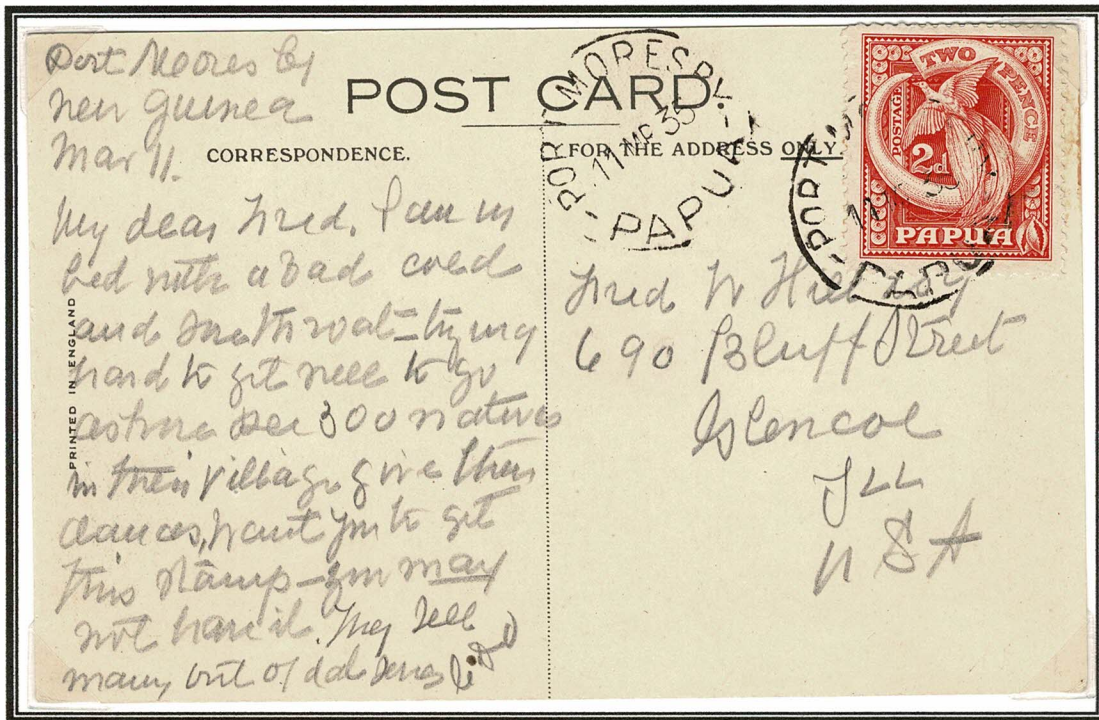 Port Moores by
New Guinea
Mar 11.
POST CARD.
CORRESPONDENCE.
FOR THE ADDRESS ONLY.
PRINTED IN ENGLAND
PORT MORESBY
11 MR 35
PAPUA
TWO PENCE
POSTAGE
2d
PAPUA
PORT
PAPUA
My dear Fred, I am in
bed with a bad cold
and throat – trying
hard to get well to go
ashore see 300 natives
in their village give their
dances, want you to get
this stamp – you may
not have it. They sell
many out of date
Fred W
690 Bluff Street
Glencoe
Ill
U S A